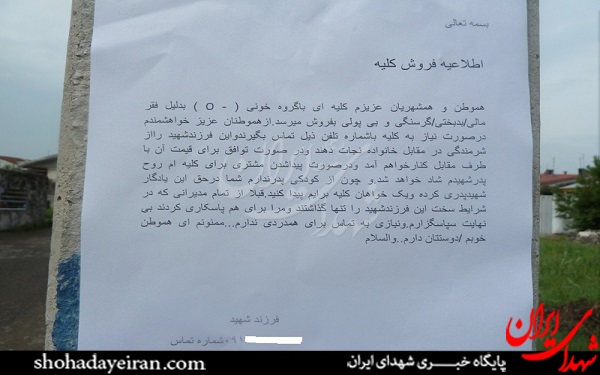 بسمه تعالی
اطلاعیه فروش کلیه
هموطن و همشهریان عزیزم کلیه ای باگروه خونی ( - O ) بدلیل فقر
مالی/بدبختی/گرسنگی و بی پولی بفروش میرسد.ازهموطنان عزیز خواهشمندم
درصورت نیاز به کلیه باشماره تلفن ذیل تماس بگیرندواین فرزندشهید رااز
شرمندگی در مقابل خانواده نجات دهند ودر صورت توافق برای قیمت آن با
طرف مقابل کنارخواهم آمد ودرصورت پیداشدن مشتری برای کلیه ام روح
پدرشهیدم شاد خواهد شد.و چون از کودکی پدرندارم شما درحق این یادگار
شهیدپدری کرده ویک خواهان کلیه برایم پیدا کنید.قبلا از تمام مدیرانی که در
شرایط سخت این فرزندشهید را تنها گذاشتند ومرا برای هم پاسکاری کردند بی
نهایت سپاسگزارم.ونیازی به تماس برای همدردی ندارم...ممنونم ای هموطن
خوبم /دوستتان دارم..والسلام
فرزند شهید
شماره تماس ۰۹۱
shohadayeiran.com
پایگاه خبـــری شهدای ایران،
شهدای ایران